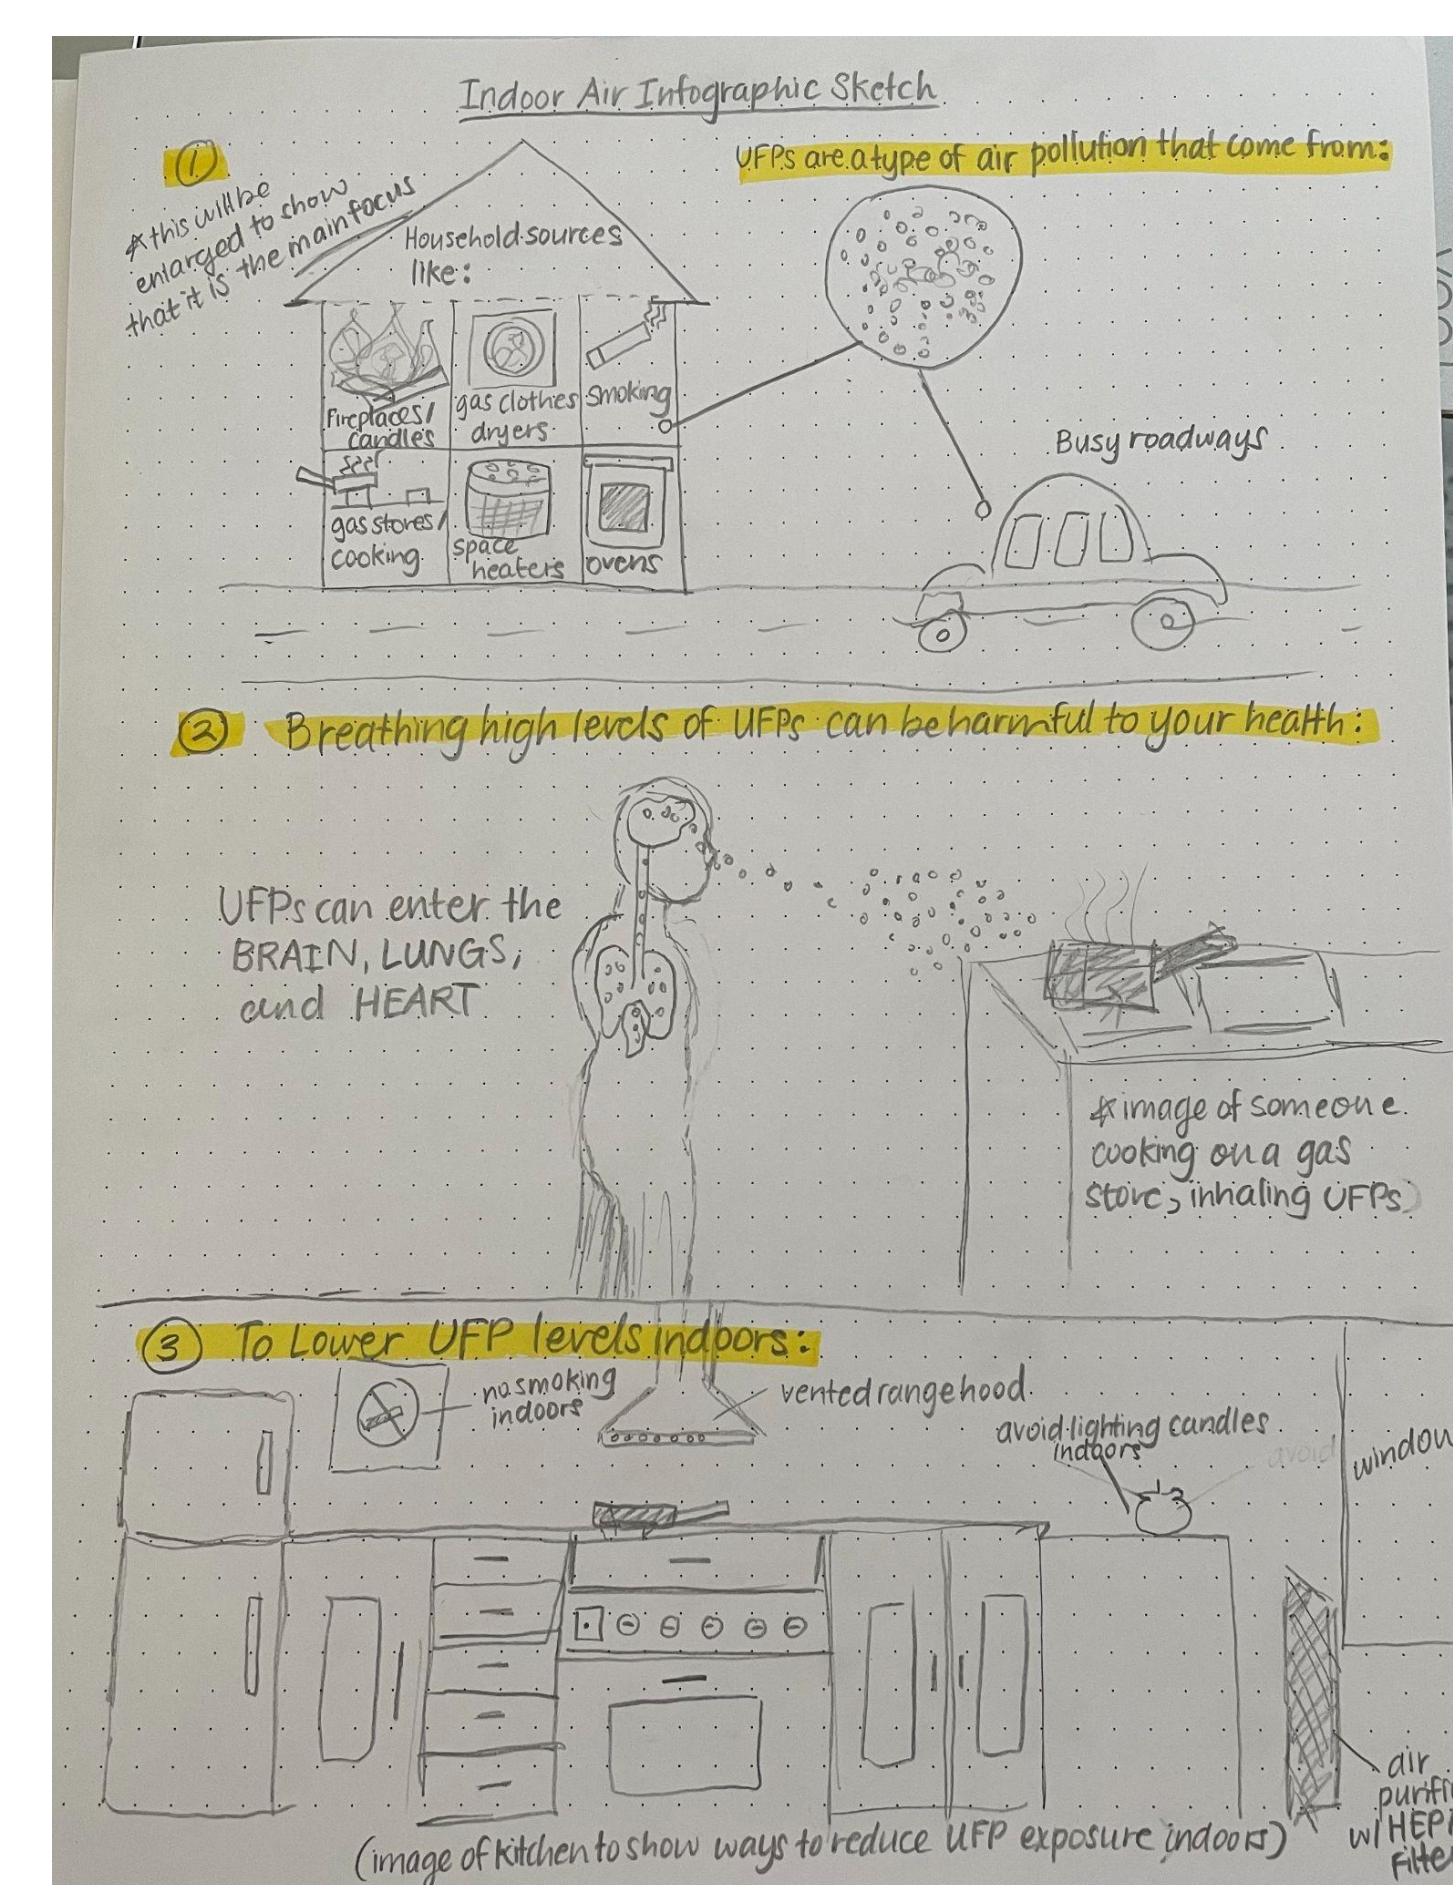 Indoor Air Infographic Sketch
①
UFPs are a type of air pollution that come from:
*this will be
enlarged to show
that it is the main focus
Household sources
like:
Fireplaces/
candles
gas clothes
dryers
Smoking
gas stoves/
cooking
space
heaters
ovens
Busy roadways
② Breathing high levels of UFPs can be harmful to your health:
UFPs can enter the
BRAIN, LUNGS,
and HEART
*image of someone
cooking on a gas
stove, inhaling UFPs
③ To Lower UFP levels indoors:
no smoking
indoors
vented range hood
avoid lighting candles
indoors
avoid
window
air
purifi
w/ HEPA
Filte
(image of kitchen to show ways to reduce UFP exposure indoors)